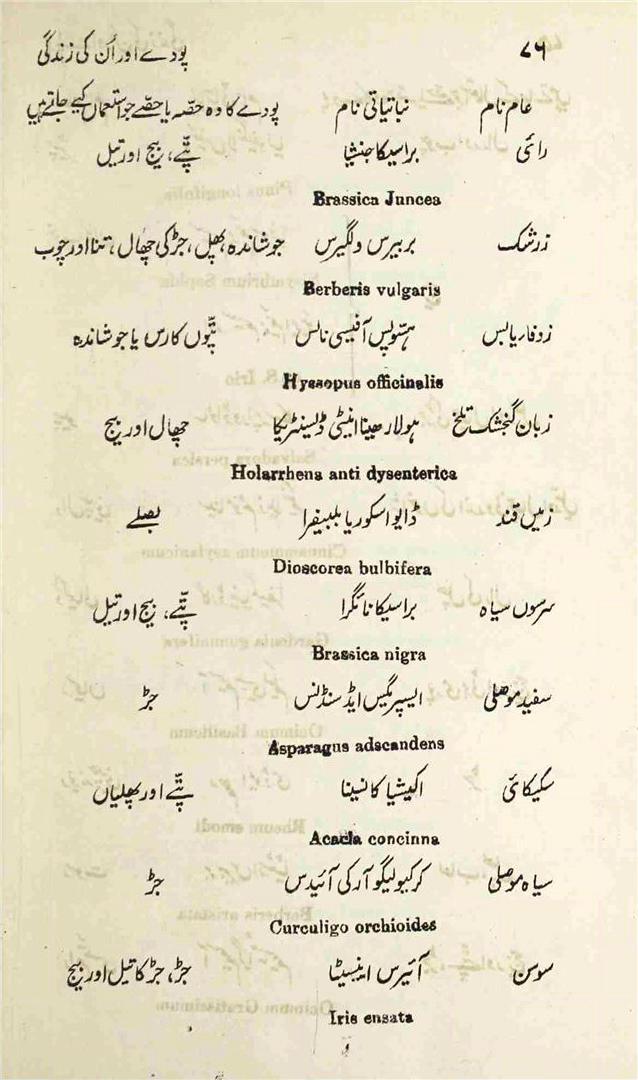 ۷۶ پودے اور اُن کی زندگی
عام نام نباتیاتی نام پودے کا وہ حصّہ یا حصّے جو استعمال کیے جاتے ہیں
رائی براسیکا جنشیا پتّے، بیج اور تیل
Brassica Juncea
زرشک بربیرس ولگیرس جوشاندہ پھل، جڑ کی چھال، تنا اور چوب
Berberis vulgaris
زوفا یابس ہسّوپس آفیسی نالس پتّوں کا رس یا جوشاندہ
Hyssopus officinalis
زبان گنجشک تلخ ہولارھینا اینٹی ڈیسنٹریکا چھال اور بیج
Holarrhena anti dysenterica
زمیں قند ڈایواسکوریا بلبیفرا بصلے
Dioscorea bulbifera
سرسوں سیاہ براسیکا نائگرا پتّے، بیج اور تیل
Brassica nigra
سفید موصلی ایسپریگس ایڈسنڈنس جڑ
Asparagus adscandens
سکیکائی اکیشیا کانسینا پتّے اور پھلیاں
Acacia concinna
سیاہ موصلی کرکیولیگو آرکی آئیدس جڑ
Curculigo orchioides
سوسن آئیرس اینسیٹا جڑ، جڑ کا تیل اور بیج
Iris ensata